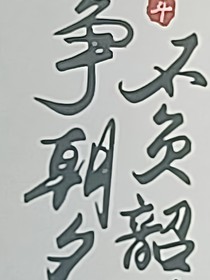 争朝夕
不负韶